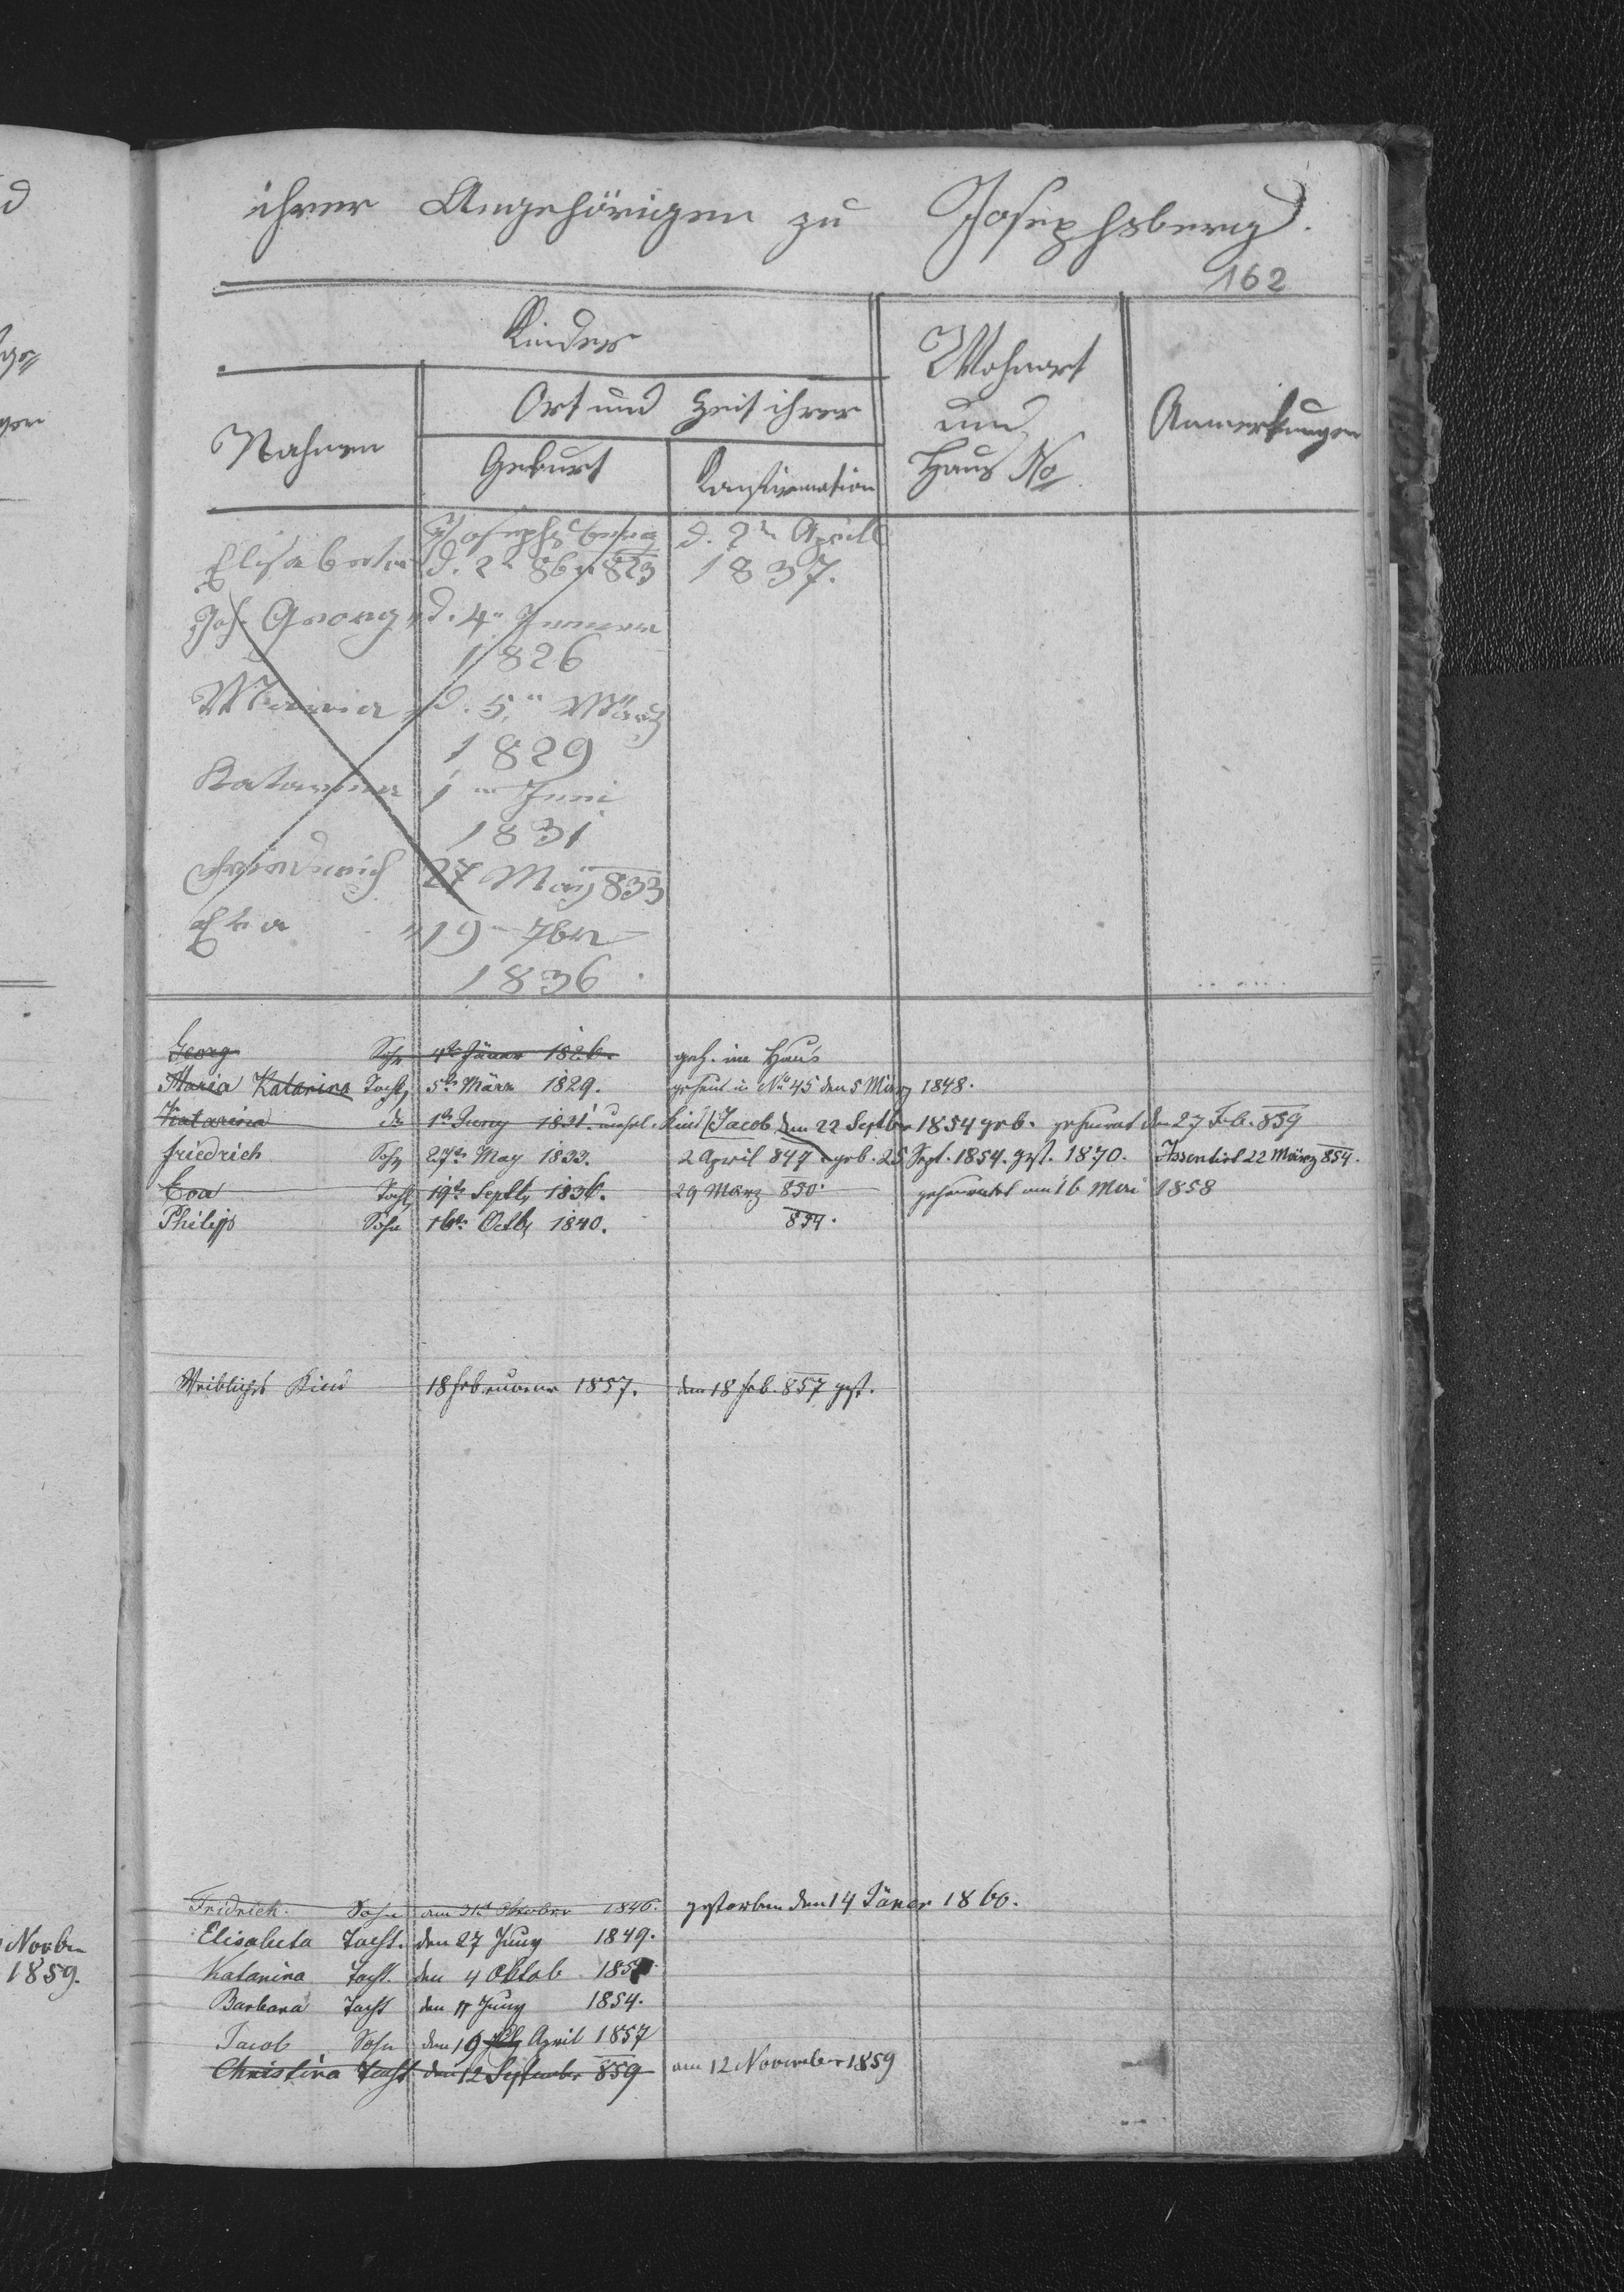 ihrer Angehörigen zu Josephsberg.
162
Kinder
Wohnort
und
Haus No
Anmerkungen
Nahmen
Ort und Zeit ihrer
Geburt
Konfirmation
Elisabetha Josephsberg d. 2n Aprill
d. 2n 8br 823 1837.
Joh. Georg d. 4n Jenner
1826
Maria d. 5n März
1829
Katarina 1n Juni
1831
Friedrich 27 May 833
Eva 19n 7ber
1836.
Georg Sohn 4te Jäner 1826. geh. im Haus
Maria Katarina Tocht. 5te März 1829. geheirt in No 45 den 5 März 1848.
Katarina do 1te Juny 1831. unehl. Kind Jacob den 22 Septber 1854 geb. geheirat den 27 Feb. 859
Friedrich Sohn 27te May 1833. 2 April 847 geb. 25 Sept. 1854. gest. 1870. Assentirt 22 März 854.
Eva Tocht 19te Septb 1836. 29 März 850. geheirathet am 16 Mai 1858
Philipp Sohn 16te Octb 1840. 854.
Weibliches Kind 18 Februar 1857. den 18 Feb. 857 gest.
Novber
1859.
Fridrich. Sohn am 31t Oktober 1846. gestorben den 14 Jäner 1860.
Elisabeta Tocht. den 27 Juny 1849.
Katarina Tocht. den 4 Oktob
Barbara Tocht den Juny 1854.
Jacob Sohn den 19 April 1857
Christina Tocht den 12 September 859 am 12 November 1859